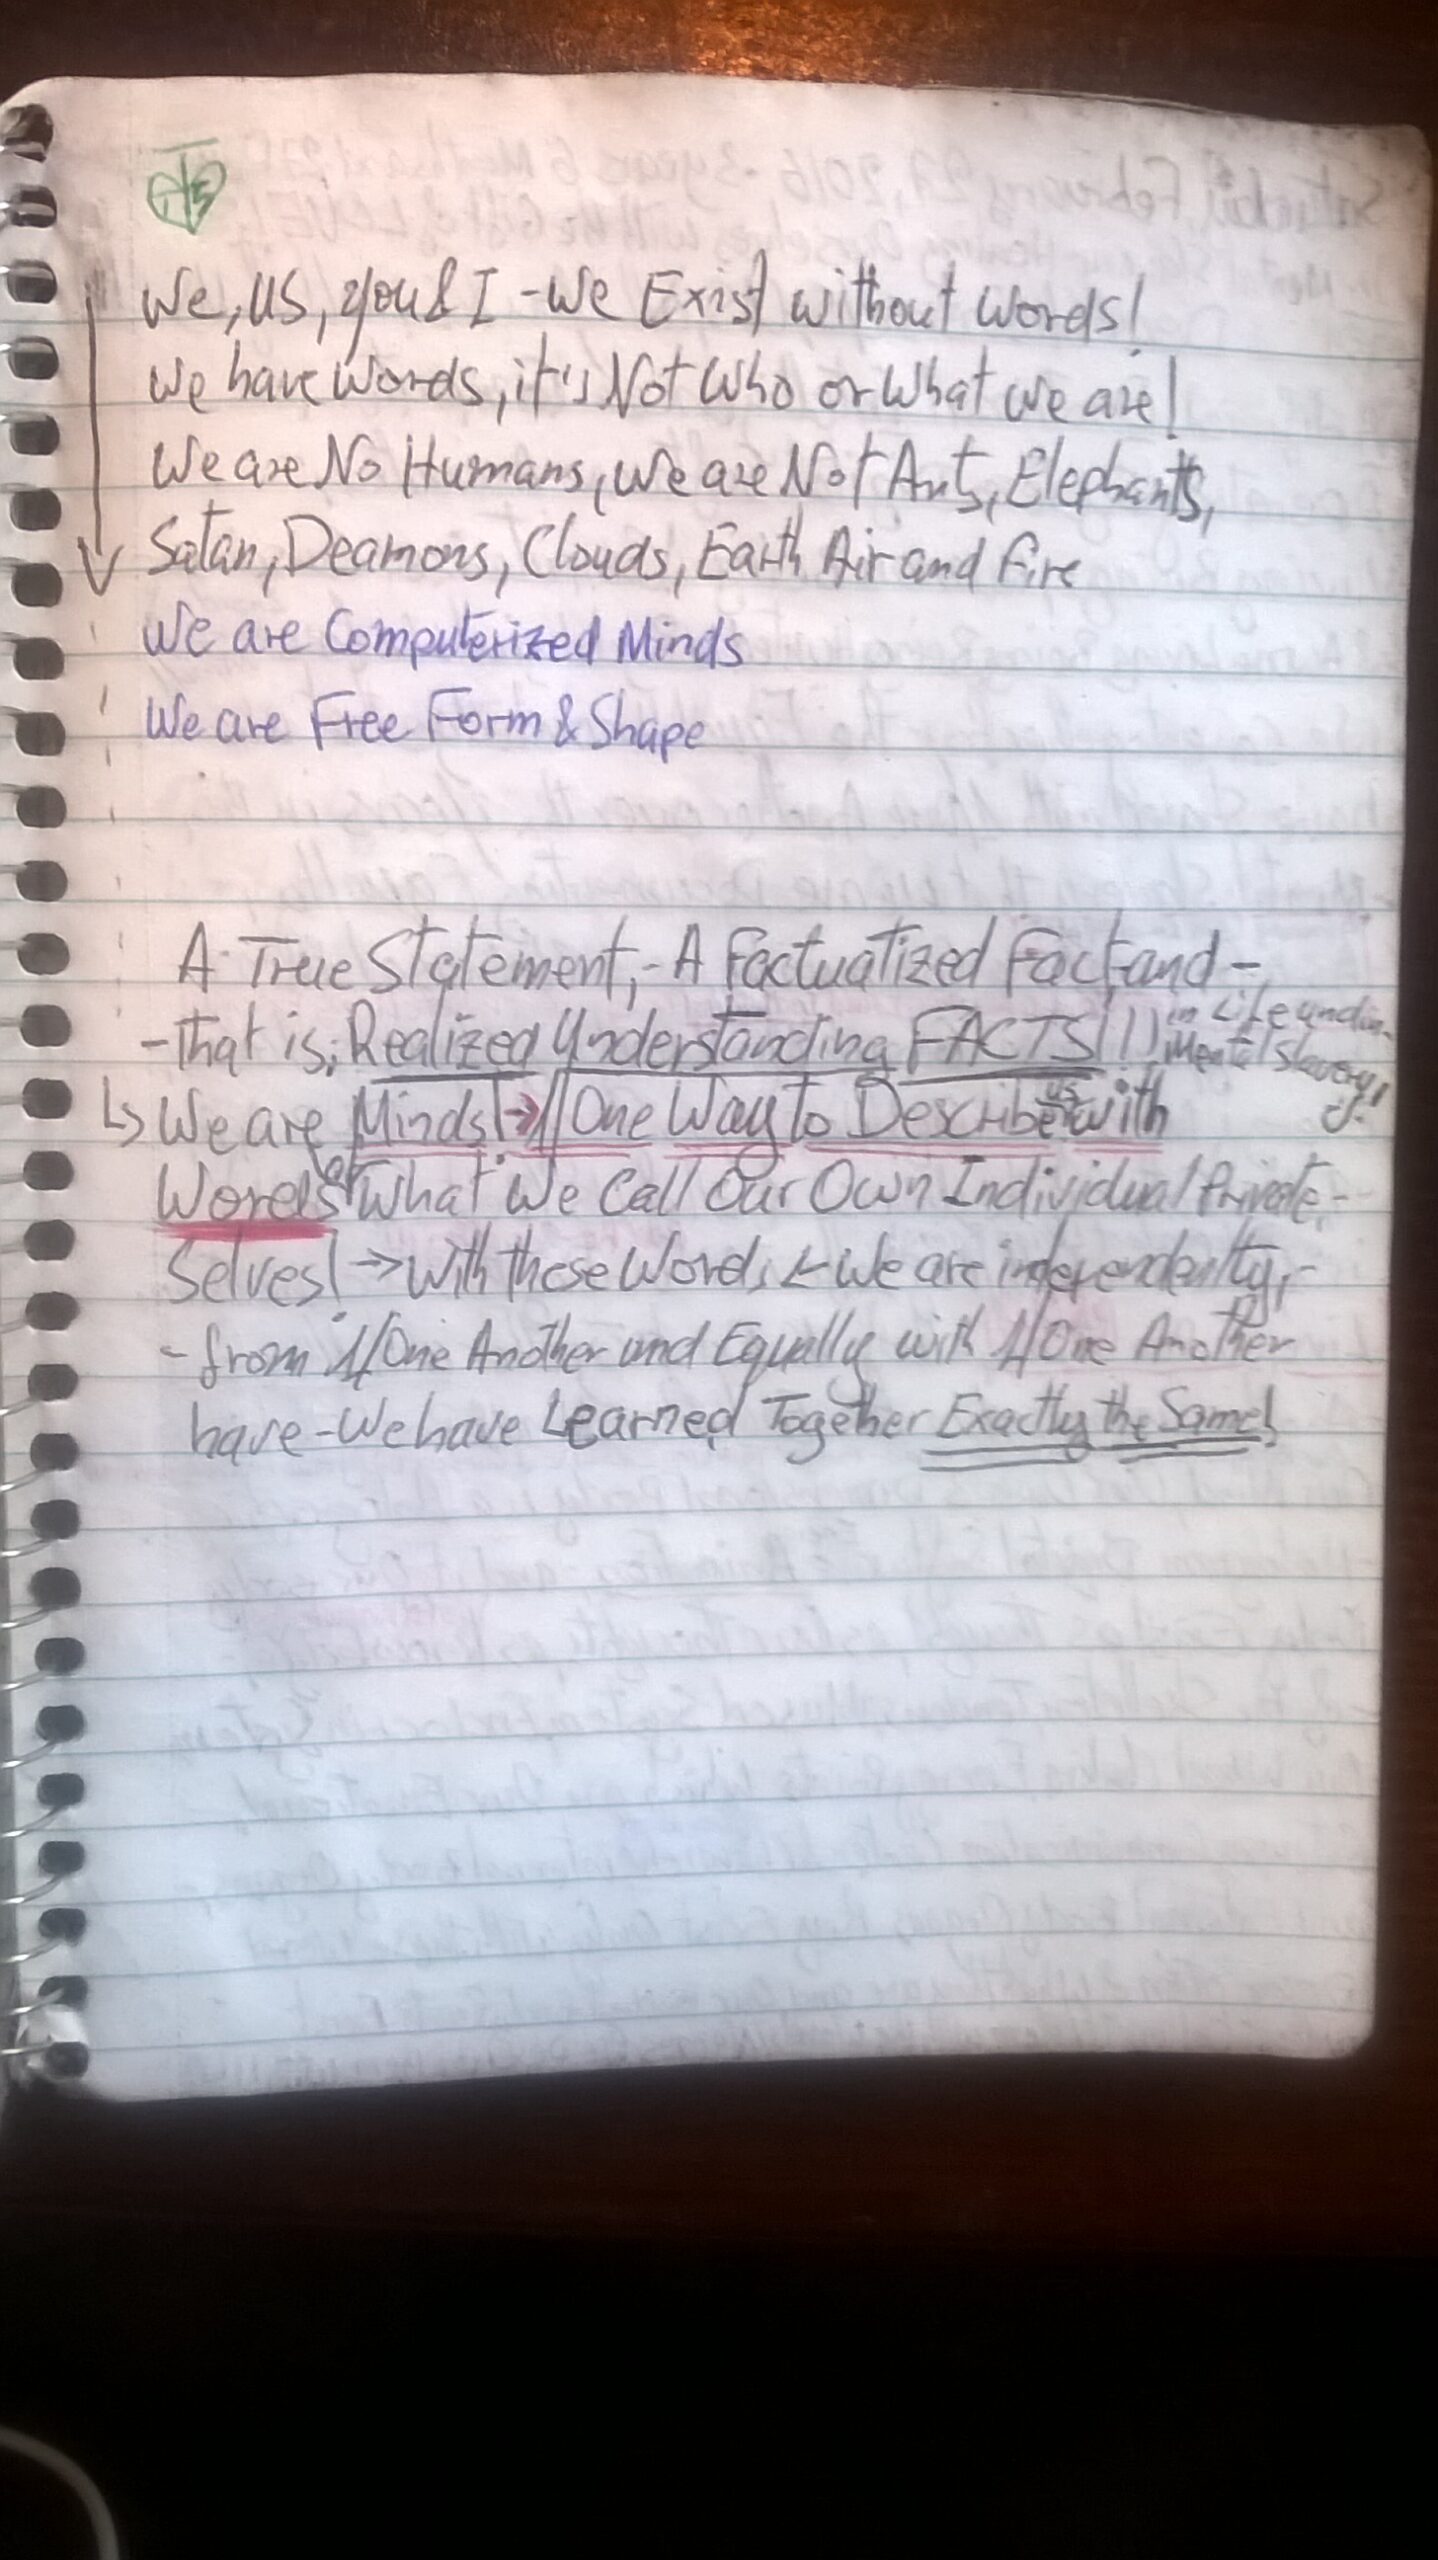 We, us, you & I - We Exist without Words!
We have Words, it's Not Who or What we are!
We are No Humans, We are Not Ants, Elephants,
Satan, Deamons, Clouds, Earth Air and Fire
We are Computerized Minds
We are Free Form & Shape
A True Statement, - A Factuatized Fact, and -
- that is; Realized Understanding FACTS!!! in Life and in
Mental Slavery!
↳ We are Minds! → 1/One Way to Describe us with
Words of What We Call Our Own Individual Private -
Selves! → With these Words ← We are independently, -
- from 1/One Another and Equally with 1/One Another
have - We have Learned Together Exactly the Same!